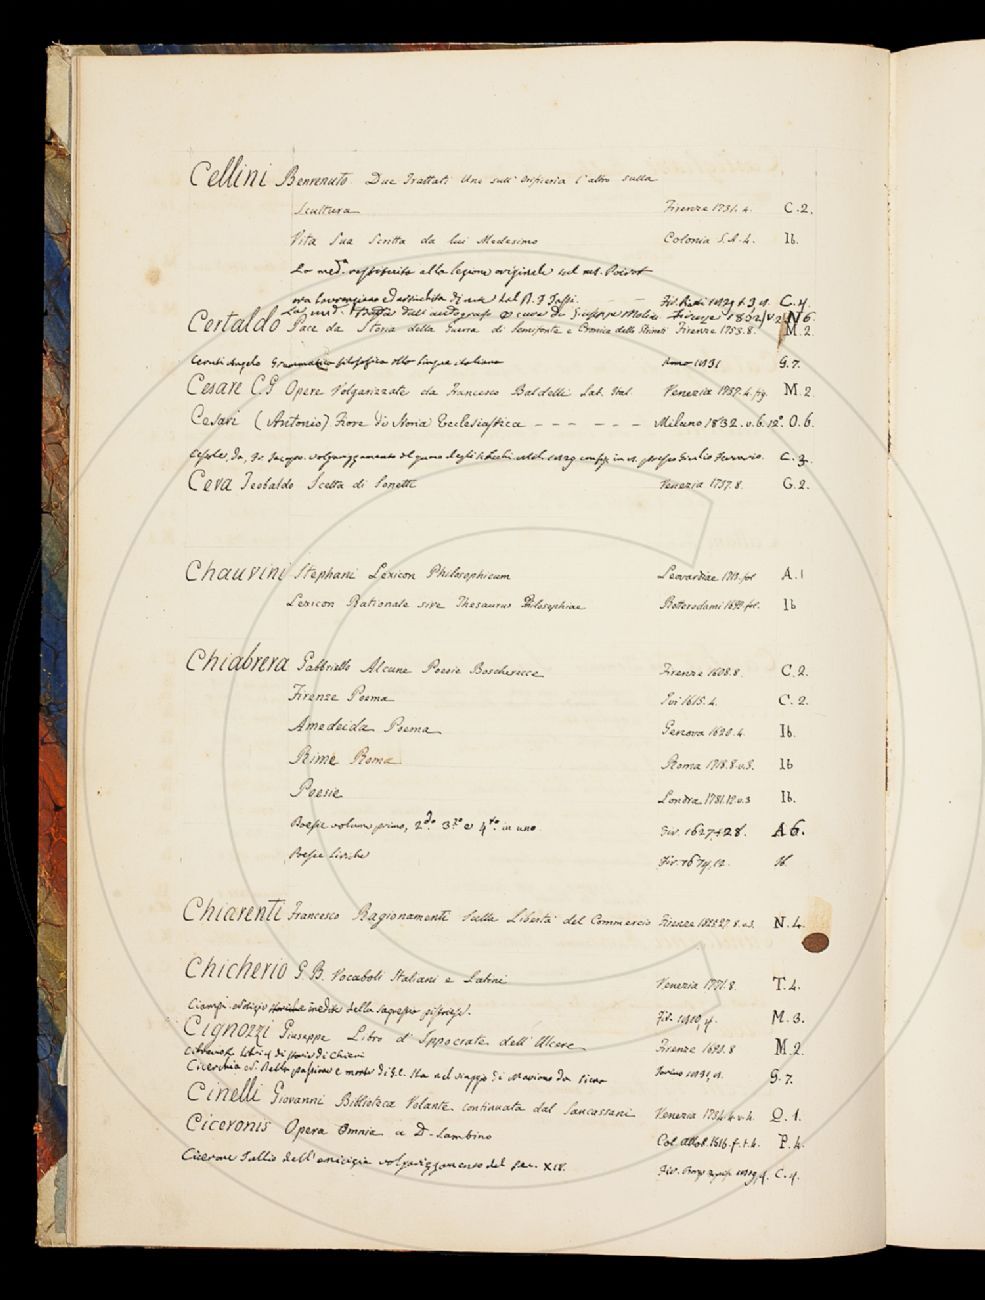 Cellini Benvenuto. Due Trattati Uno sull' Orificeria l'altro sulla
Scultura Firenze 1731. 4. C. 2.
Vita Sua Scritta da lui Medesimo Colonia S.A. 4. Ib.
La med.a alla lezione originale sul ms. Poirot
ora del D. F. Tassi. Fir. 1829 t. 3 C. 4.
La med. dall'autografo a cura di Giuseppe Molini Firenze 1832 N 6.
Certaldo Pace da Storia della Guerra di Semifonte e Cronica delli Firenze 1753. 8. M. 2.
Ceruti Angelo Grammatica filosofica della lingua italiana G. 7.
Cesare C. G Opere Volgarizzate da Francesco Baldelli Lat. Ital. Venezia 1737. 4. fig. M. 2
Cesari (Antonio) Fiore di Storia Ecclesiastica - - - - - - Milano 1832. v. 6. 12°. O. 6.
Cessole, da, Fr. Jacopo. volgarizzamento del giuoco degli Scacchi presso Giulio Ferrario. C. 3.
Ceva Teobaldo Scelta di Sonetti Venezia 1737. 8. G. 2.
Chauvini Stephani Lexicon Philosophicum Leovardiae 1713. fol A. 1
Lexicon Rationale sive Thesaurus Philosophiae Rotterodami 1692. fol. Ib
Chiabrera Gabbriello Alcune Poesie Boscherecce Firenze 1608. 8. C. 2.
Firenze Poema Ivi 1615. 4. C. 2.
Amedeida Poema Genova 1620. 4. Ib.
Rime Roma Roma 1718. 8. v. 3. Ib
Poesie Londra 1781. 12 v. 3 Ib.
Poesie volume primo, 2do. 3zo e 4to. in uno Fir. 1627 28. A 6.
Poesie liriche Fir. 1674. 12. Ib.
Chiarenti Francesco Ragionamenti sulla Libertà del Commercio Firenze N. 4.
Chicherio G. B. Vocaboli Italiani e Latini Venezia 1771. 8. T. 4.
Ciampi notizie inedite della Sagrestia pistoiese. Fir. 1810. 4. M. 3.
Cignozzi Giuseppe Libro d'Ippocrate dell'Ulcere Firenze 1690. 8 M. 2.
Libri 4 di storie di Chieri
Cicerchia della passione e morte di G. C. Sta nel viaggio di Mariano da Siena Torino 1831. G. 7.
Cinelli Giovanni Biblioteca Volante continuata dal Sancassani Venezia 1734. 4. v. 4. Q. 1.
Ciceronis Opera Omnia a D. Lambino Col. Allob. 1616. f. t. 4. P. 4.
Cicerone Tullio dell'amicizia volgarizzamento del sec. XIV. Fir. C. 4.